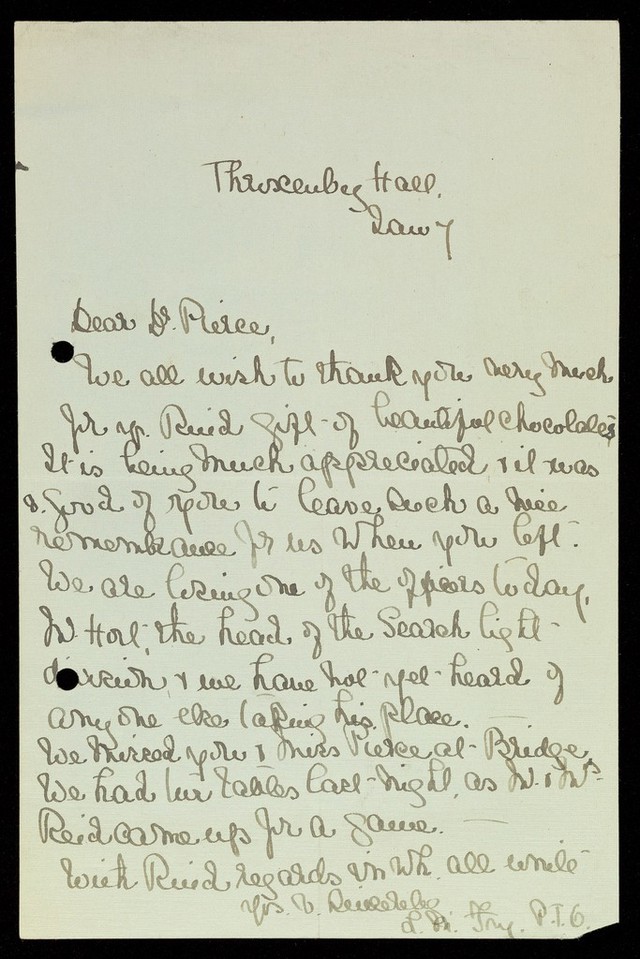 Throxenby Hall.
Jan 7
Dear Dr. Pierce,
We all wish to thank you very much
for yr. kind gift of beautiful chocolates
It is being much appreciated & it was
s. good of you to leave such a nice
remembrance for us when you left.
We are losing one of the officers today,
Mr Hort, the head of the Search light
division, & we have not yet heard of
any one else taking his place.
We missed you & Miss Pierce at Bridge,
We had two tables last night, as Mr. & Mrs
Reid came up for a game.
With kind regards in wh. all unite
Yrs. v. sincerely
P.T.O.